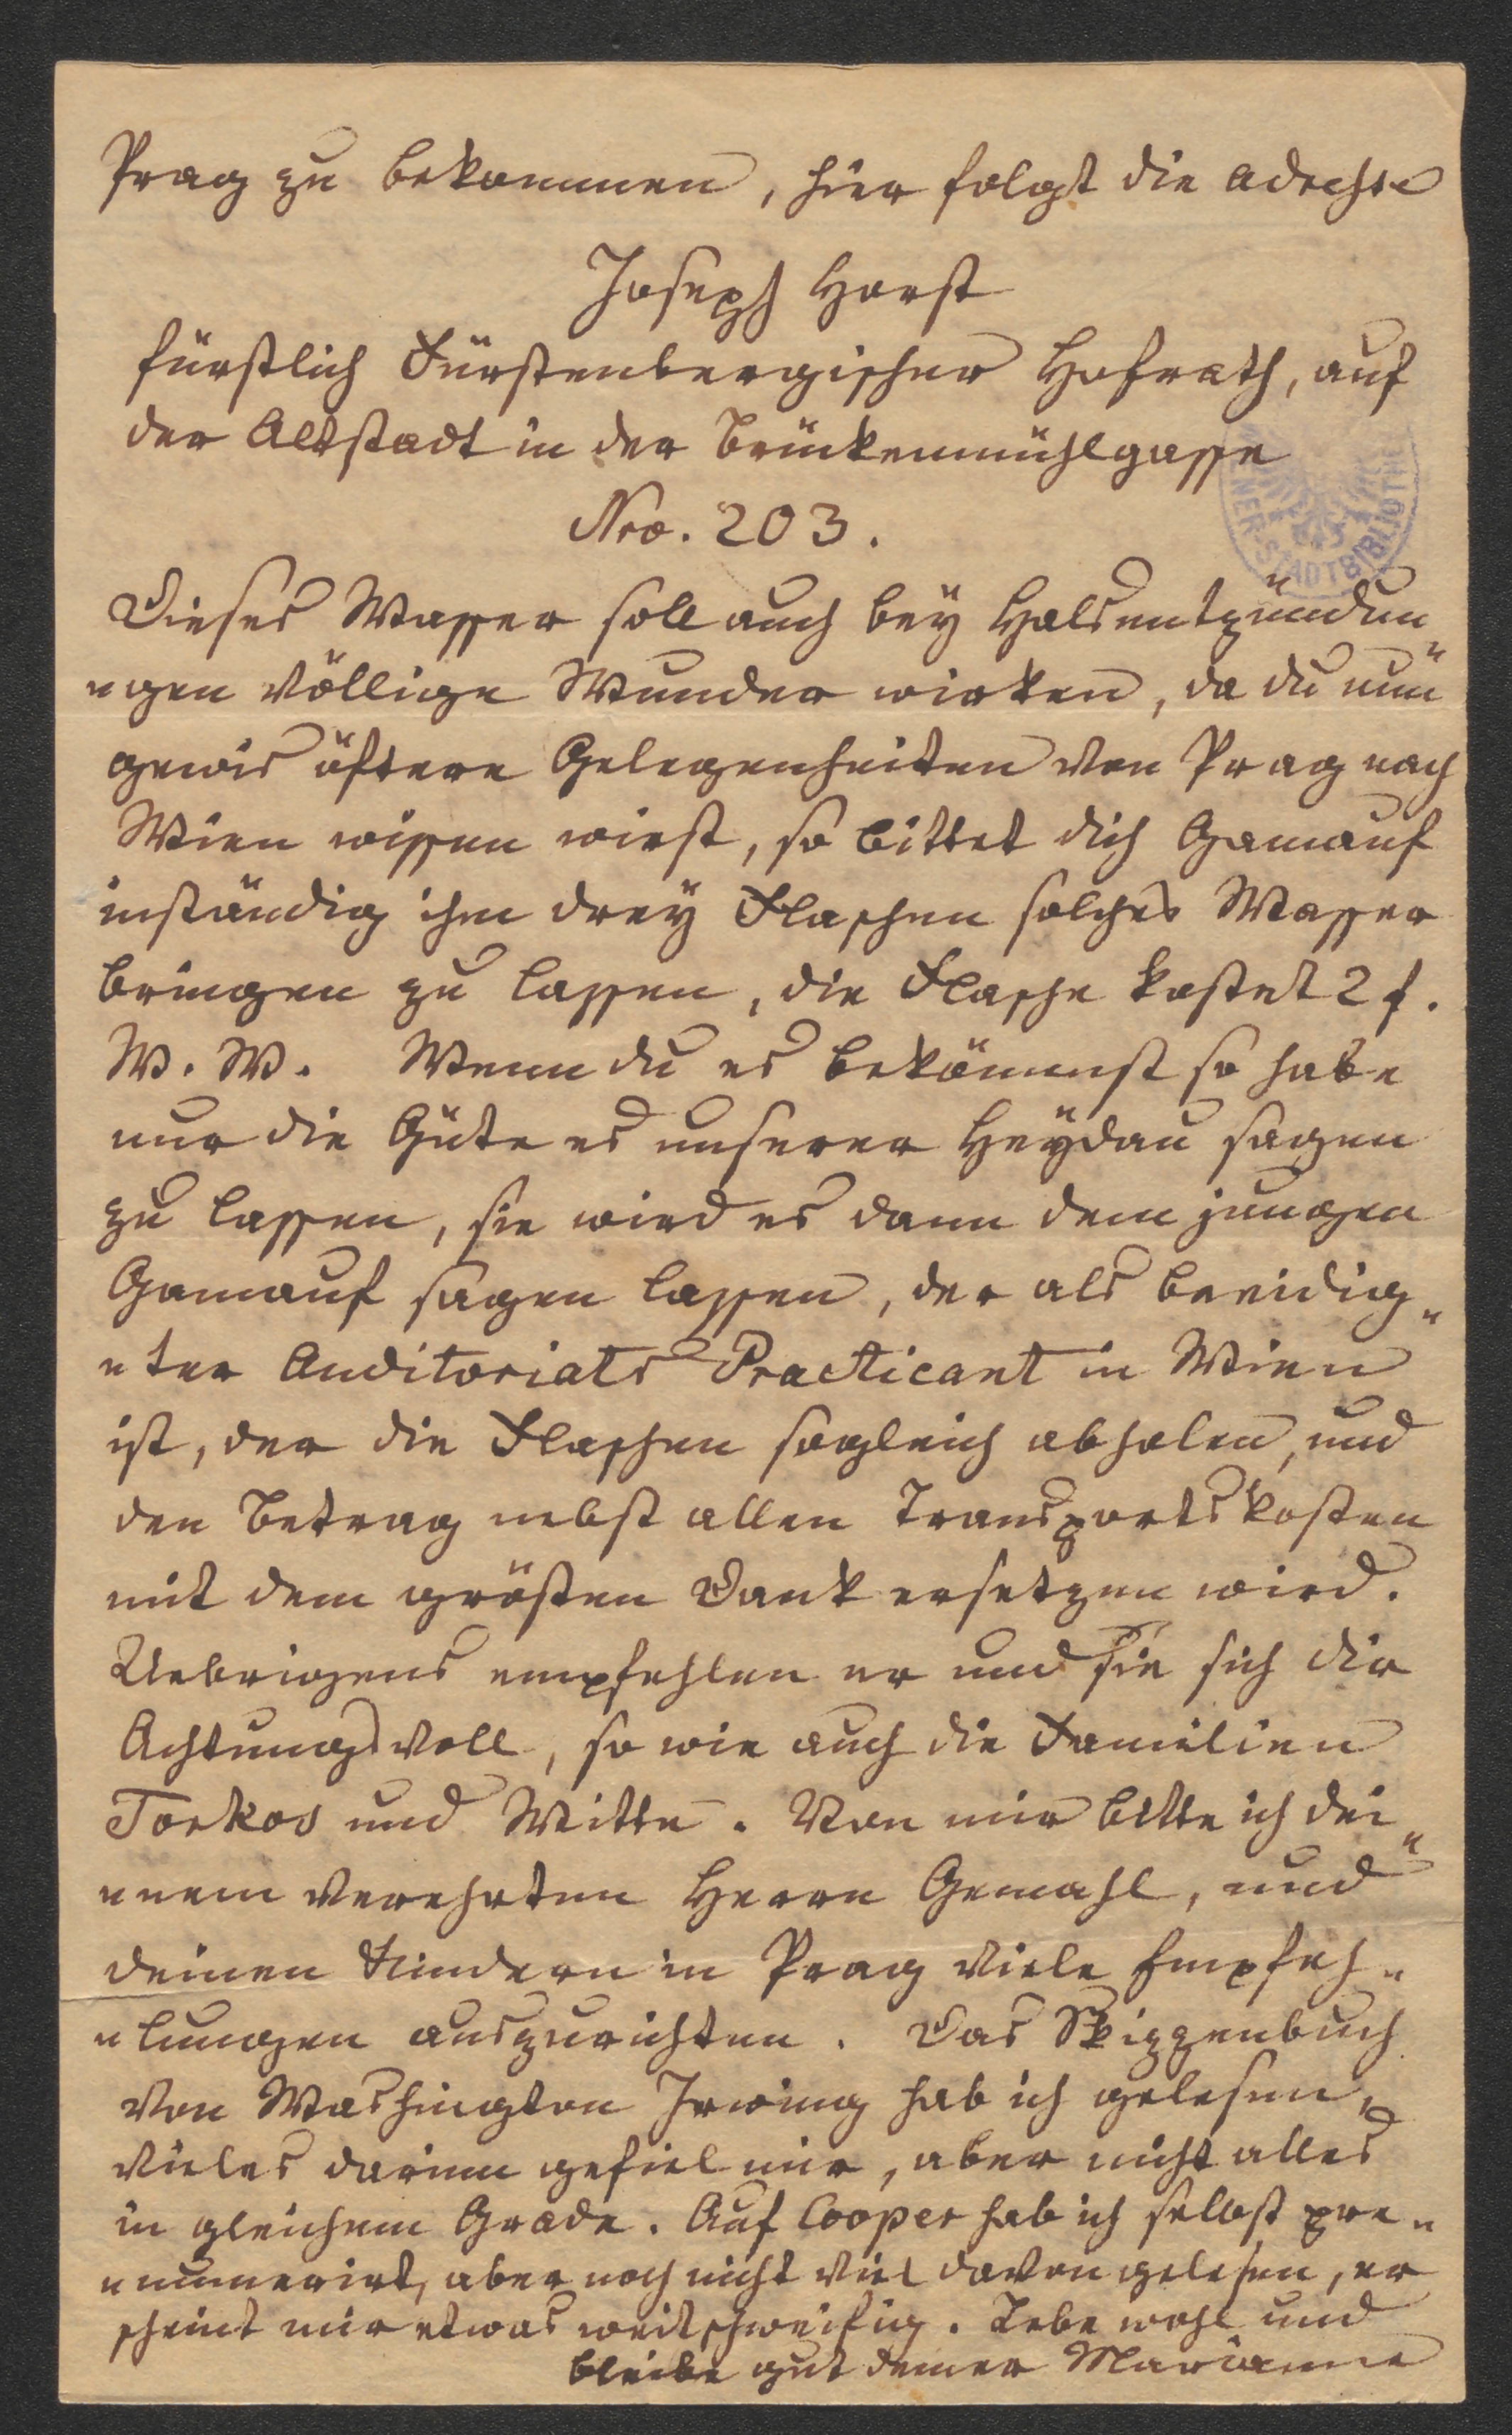 Prag zu bekommen, hier folgt die Adreße
Joseph Horst
fürstlich Fürstenbergischer Hofrath, auf
der Altstadt in der Brückenmühlgasse
Nro. 203.
Dieses Wasser soll auch bey Halsentzündun„
„gen völlige Wunder wirken, da du nun
gewis öftere Gelegenheiten von Prag nach
Wien wissen wirst, so bittet dich Gamauf
inständig ihm drey Flaschen solches Wasser
bringen zu lassen, die Flasche kostet 2 f.
W. W. Wenn du es bekömmst so habe
nur die Güte es unserer Heydau sagen
zu lassen, sie wird es dann dem jungen
Gamauf sagen lassen, der als beeidig„
„ter Auditoriats Practicant in Wien
ist, der die Flaschen sogleich abholen, und
den Betrag nebst allen Transportskosten
mit dem grösten Dank ersetzen wird.
Uebrigens empfehlen er und sie sich dir
Achtungsvoll, so wie auch die Familien
Torkos und Witte. Von mir bitte ich dei„
„nem verehrten Herrn Gemahl, und
deinen Kindern in Prag viele Empfeh„
„lungen auszurichten. Das Skizzenbuch
von Washington Irwing hab ich gelesen,
vieles darinn gefiel mir, aber nicht alles
in gleichem Grade. Auf Cooper hab ich selbst pre„
„numerirt, aber noch nicht viel davon gelesen, er
scheint mir etwas weitschweifig. Lebe wohl und
bleibe gut deiner Marianne
WIENER STADTBIBLIOTHEK